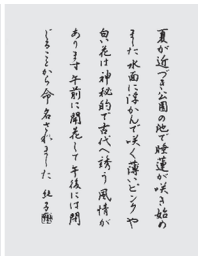 夏が近づき公園の池で睡蓮が咲き始め
ました 水面に浮かんで咲く薄いピンクや
白い花は神秘的で古代へ誘う風情が
あります 午前に開花して午後には閉
じることから命名されました